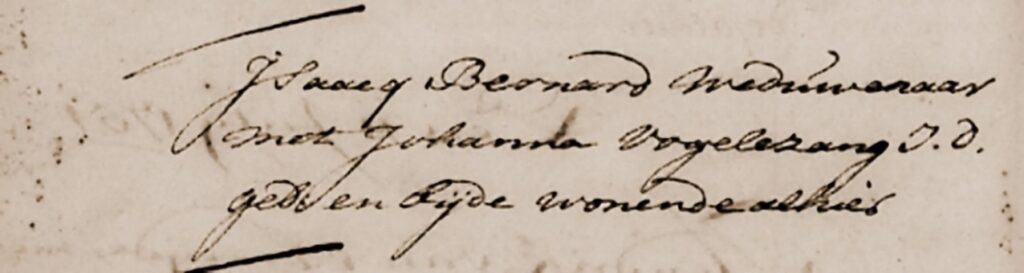 Isaacq Bernard Weduwenaar
met Johanna Vogelezang J.d.
geb: en beijde wonende alhier